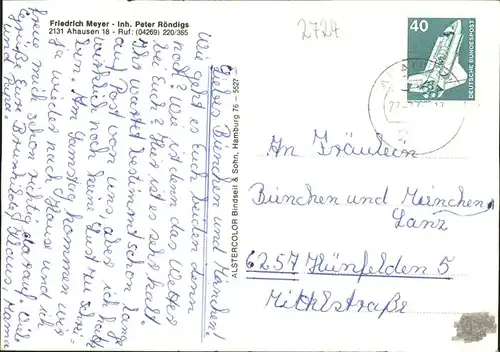 Friedrich Meyer - Inh. Peter Röndigs
2131 Ahausen 18 - Ruf: (04269) 220/365
2724
40
DEUTSCHE BUNDESPOST
Liebes Bienchen und Hänchen!
Wie geht es Euch beiden denn
noch? Wie ist denn das Wetter
bei Euch? Hier ist es sehr kalt.
Ihr wartet bestimmt schon lange
auf Post von uns, aber ich hatte
wirklich noch keine Lust zu schrei-
ben. Am Samstag kommen wir
ja wieder nach Haus und ich
freue mich schon riesig darauf. Viele
Grüße Eure Klaus, Mama
und Papa.
ALSTERCOLOR Bindseil & Sohn, Hamburg 76 - 5527
An Fräulein
Bienchen und Hänchen
Lanz
6257 Hünfelden 5
Mittelstraße